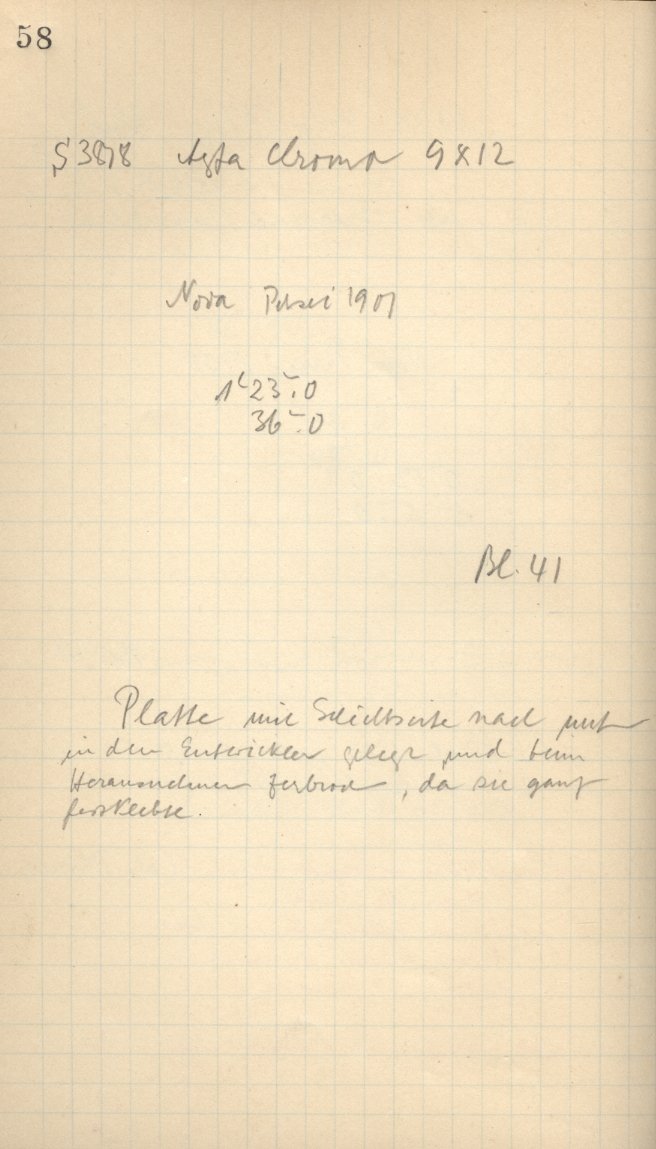 58
S 3878 Agfa Chromo 9x12
Nova Persei 1901
1h 23m.0
36m.0
Bl. 41
Platte mit Schichtseite nach unten
in den Entwickler gelegt und beim
Herausnehmen zerbrochen, da sie ganz
festklebte.